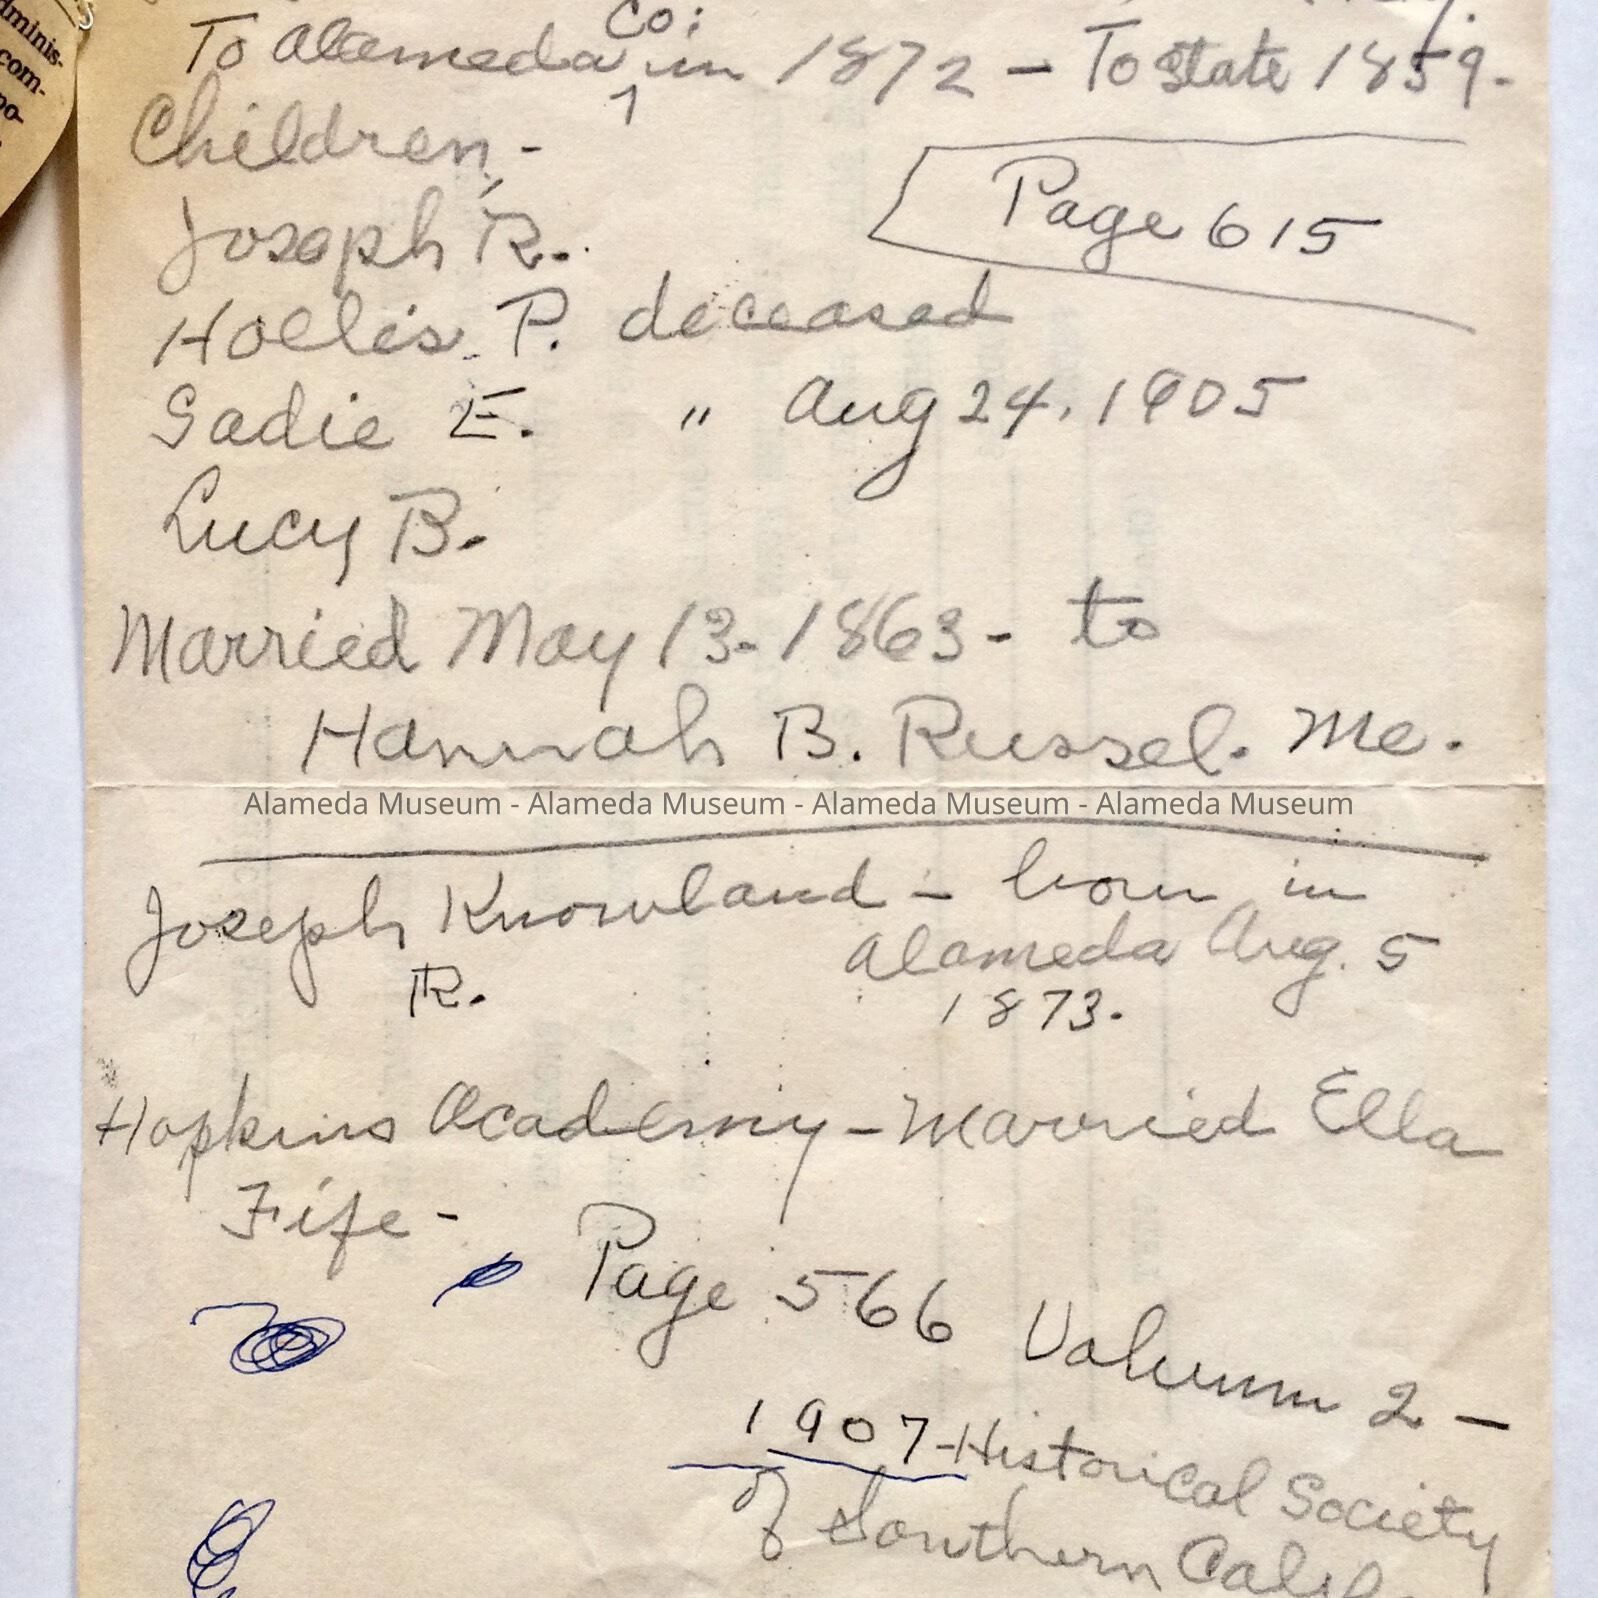 dminis-
com-
po-
Co:
To Alameda in 1872 - To State 1859.
Children, -
Page 615
Joseph R.
Hollis P. deceased
Sadie E. " Aug 24, 1905
Lucy B.
Married May 13 - 1863 - to
Hannah B. Russel. Me.
Alameda Museum - Alameda Museum - Alameda Museum - Alameda Museum
Joseph Knowland - born in
R.
Alameda Aug. 5
1873.
Hopkins Academy - Married Ella
Fife -
Page 566 Volumn 2 -
1907 - Historical Society
of Southern Calif